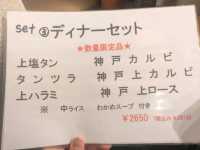 set ③ディナーセット
★数量限定品★
上塩タン 神戸カルビ
タンツラ 神戸上カルビ
上ハラミ 神戸上ロース
※ 中ライス わかめスープ 付き
¥2650